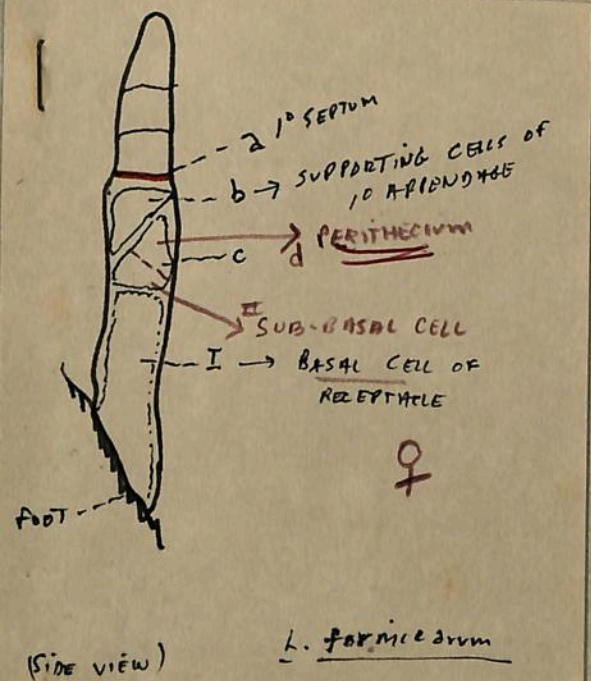 a 1° SEPTUM
b → SUPPORTING CELLS OF
1° APPENDAGE
d PERITHECIUM
c
II SUB-BASAL CELL
I → BASAL CELL OF
RECEPTACLE
♀
FOOT
(SIDE VIEW)
L. formicarum